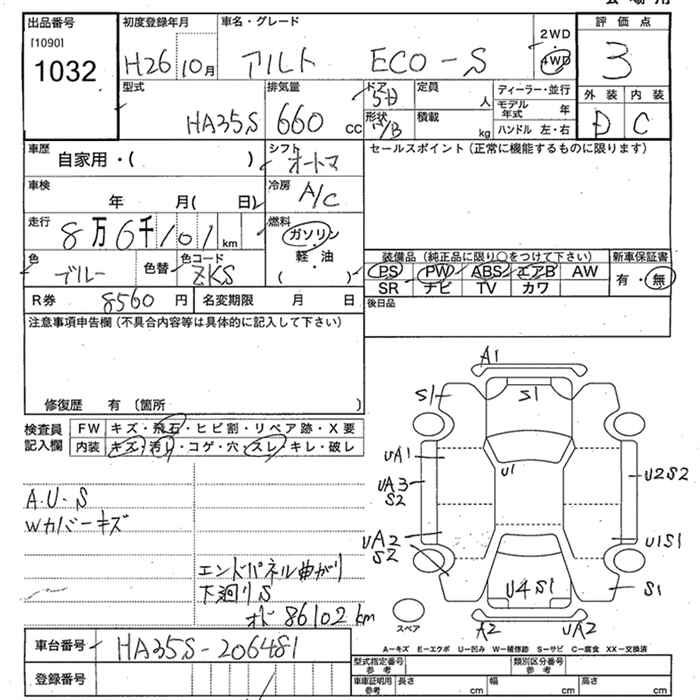 出品番号
[1090]
1032
初度登録年月
H26 10月
車名・グレード
アルト ECO-S
2WD
4WD
評価点
3
外装 内装
D C
型式
HA35S
排気量
660 cc
ドア
5D
形状
H/B
定員
人
積載
kg
ディーラー・並行
モデル年式 年
ハンドル 左・右
車歴
自家用・( )
シフト
オートマ
セールスポイント(正常に機能するものに限ります)
車検
年 月( 日)
冷房
A/C
走行
8万6千101 km
燃料
ガソリン
軽・油
( )
色
ブルー
色替
色コード
ZKS
装備品(純正品に限り○をつけて下さい)
PS PW ABS エアB AW
SR ナビ TV カワ
新車保証書
有・無
R券 8560 円
名変期限 月 日
後日品
注意事項申告欄(不具合内容等は具体的に記入して下さい)
修復歴 有(箇所 )
検査員記入欄
FW キズ・飛石・ヒビ割・リペア跡・X要
内装 キズ・汚れ・コゲ・穴・スレ・キレ・破レ
A.U.S
Wカバーキズ
エンドパネル曲がり
下廻りS
オド 86102km
A1
S1
S1
UA1
U1
UA3
S2
U2S2
UA2
S2
U1S1
U4S1
S1
A2
UA2
スペア
A-キズ E-エクボ U-凹み W-補修跡 S-サビ C-腐食 XX-交換済
車台番号 HA35S-206481
登録番号
型式指定番号
参考
類別区分番号
参考
車庫証明用
参考
長さ cm 幅 cm 高さ cm